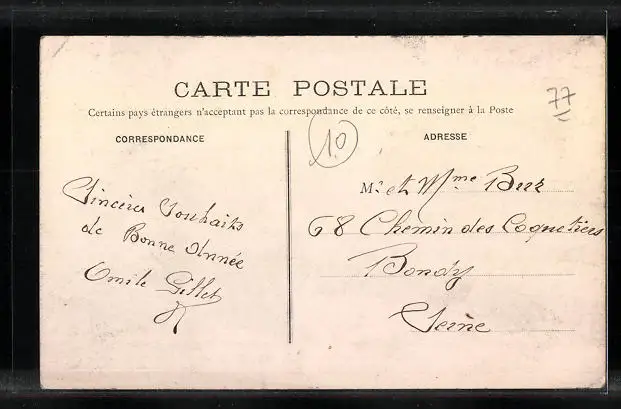 CARTE POSTALE
Certains pays étrangers n'acceptant pas la correspondance de ce côté, se renseigner à la Poste
77
10
CORRESPONDANCE
Sincères Souhaits
de Bonne Année
Emile Gillet
ADRESSE
Mr et Mme
68 Chemin des Coquetiers
Bondy
Seine